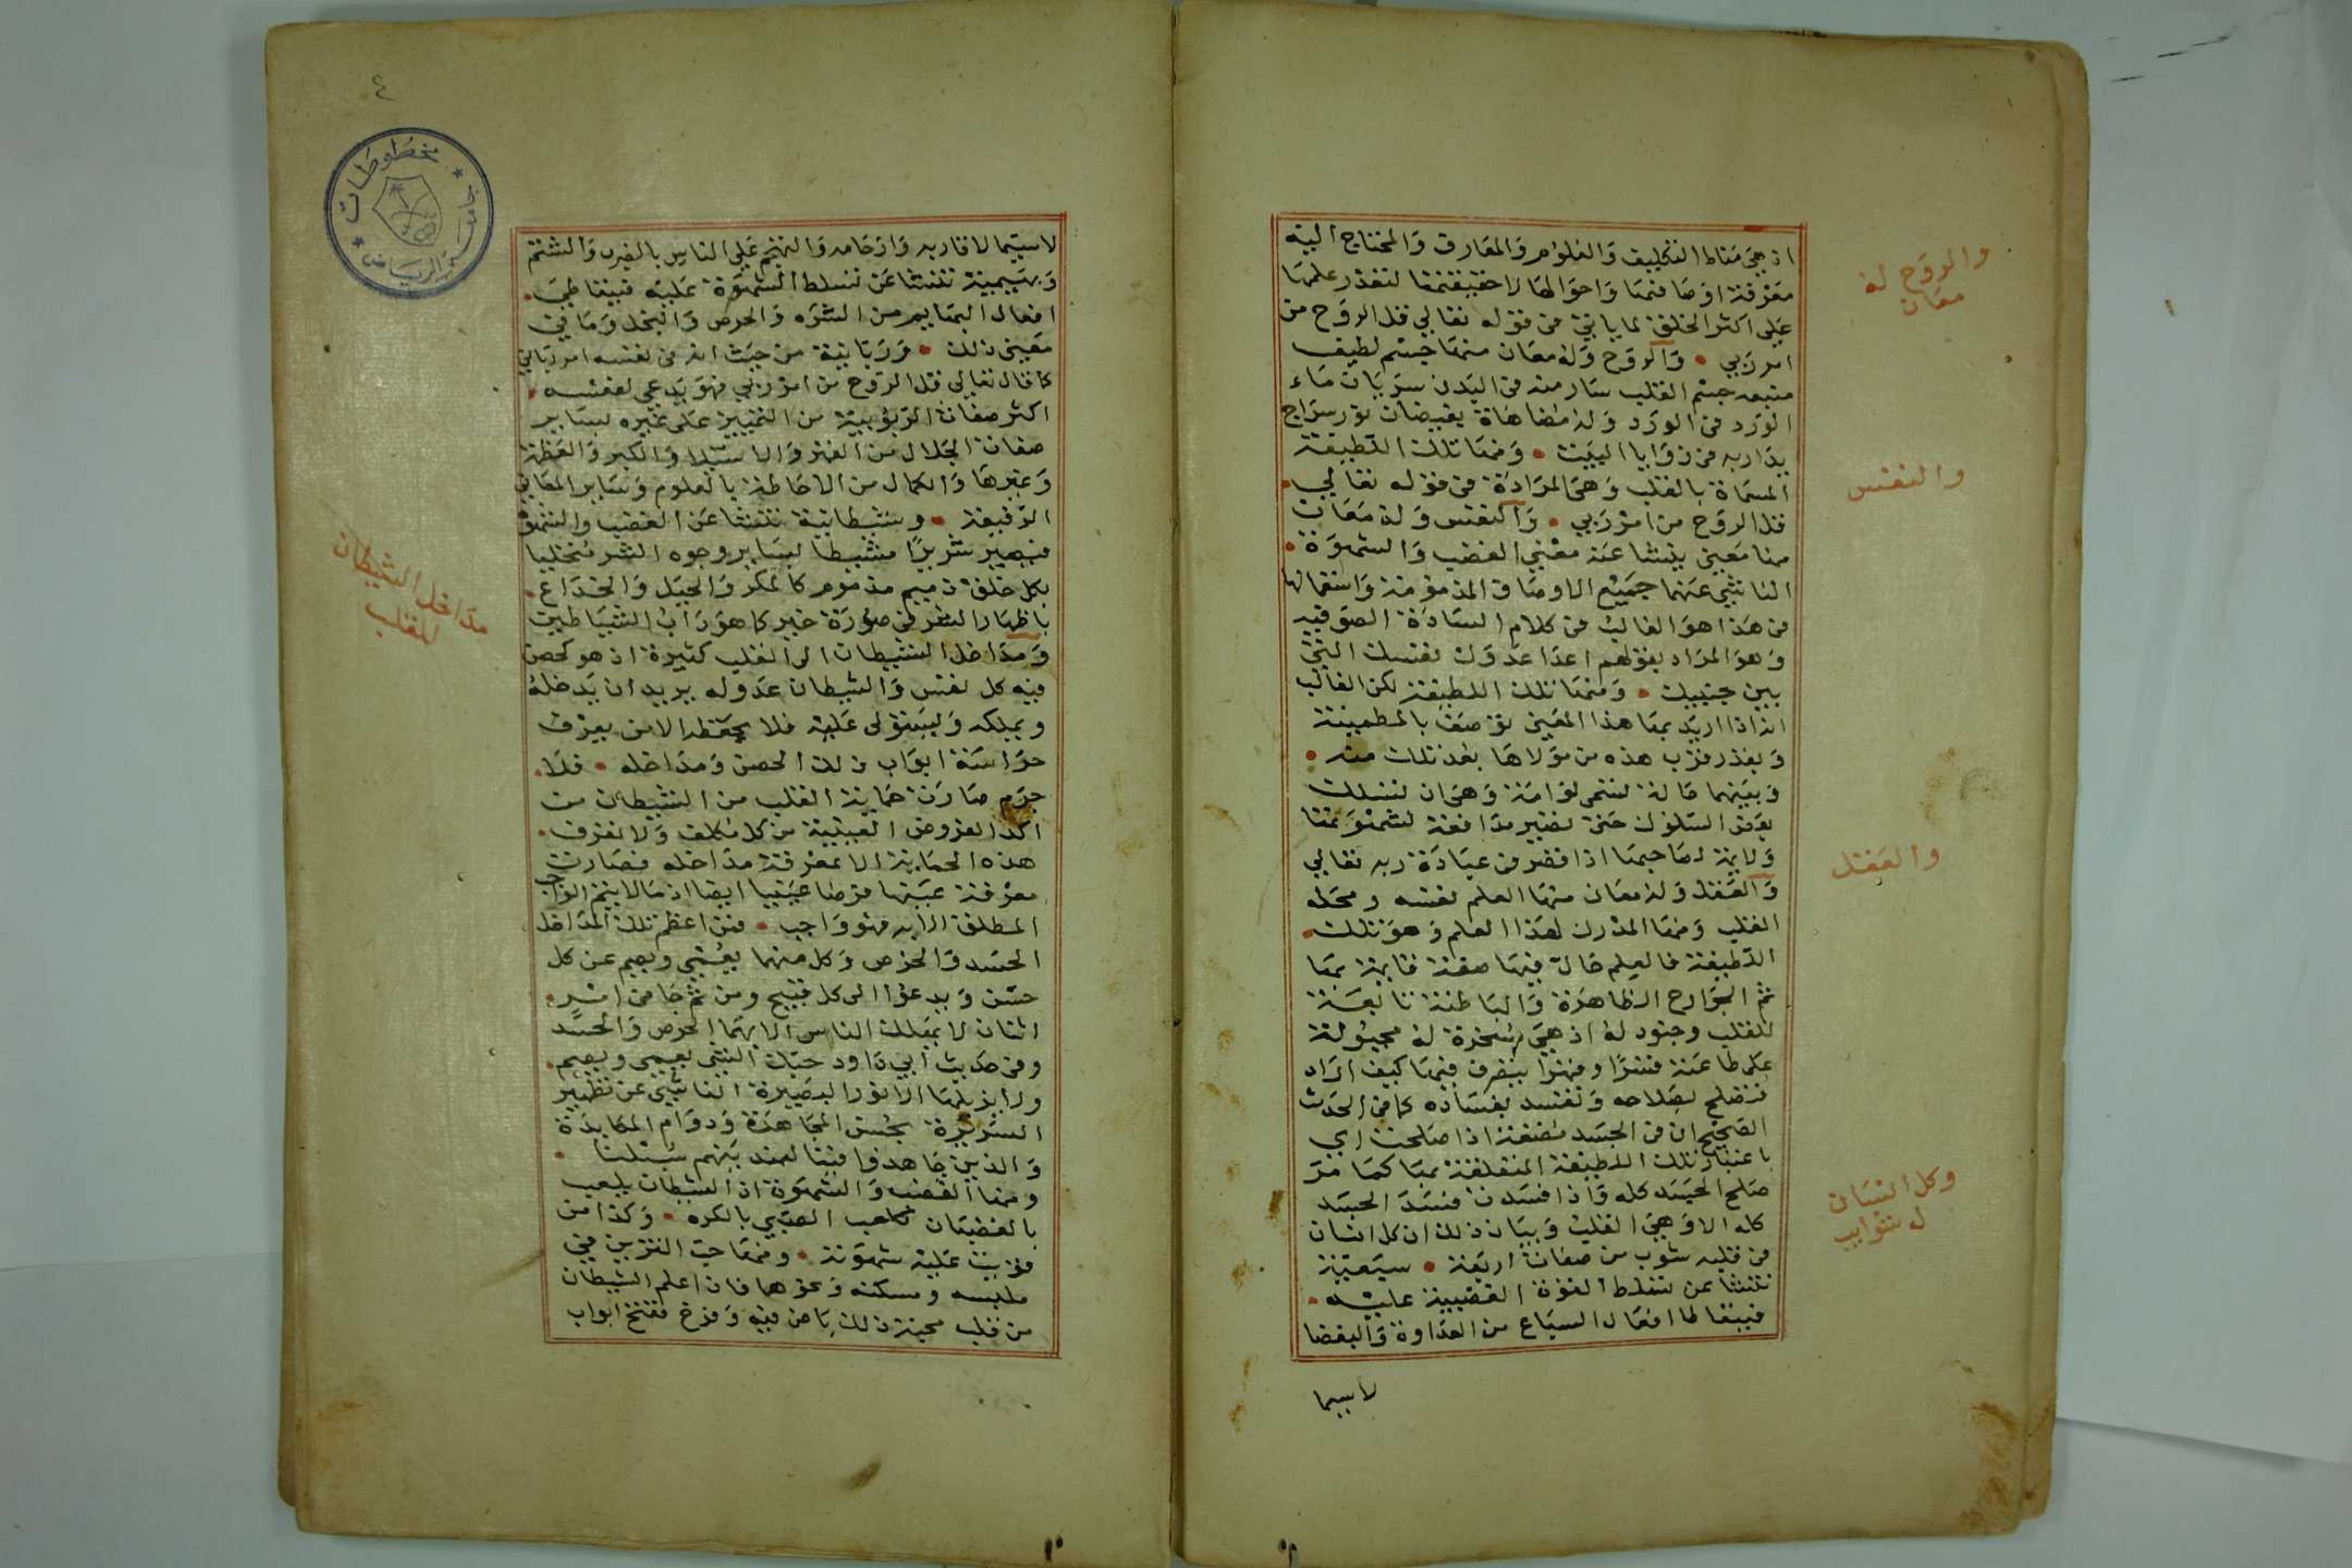 اذ هي مناط التكليف والعلوم والمعارف والمحتاج اليه
معرفة اوصافها واحوالها لا حقيقتها لتعذر علمها
على اكثر الخلق لما ياتي في قوله تعالى قل الروح من
امر ربي • والروح وله معان منها جسم لطيف
منبعه جسم القلب سار منه في البدن سريان ماء
الورد في الورد وله مضاهاة بفيضان نور سراج
يدار به في زوايا البيت • ومنها تلك اللطيفة
المسماة بالقلب وهي المرادة في قوله تعالى •
قل الروح من امر ربي • والنفس وله معان
منها معنى ينشا عنه معنى الغضب والشهوة •
الناشي عنهما جميع الاوصاف المذمومة واستعمالها
في هذا هو الغالب في كلام السادة الصوفيه
وهو المراد بقولهم اعدا عدوك نفسك التي
بين جنبيك • ومنها تلك اللطيفة لكن الغالب
انه اذا اريد بها هذا المعنى توصف بالمطمينة
وبقدر قرب هذه من مولاها بعد تلك منه •
وبينهما حالة تسمى لوامة وهي ان تسلك
بعض السلوك حتى تصير مدافعة لشهوتها
ولايمة لصاحبها اذا قصر في عبادة ربه تعالى
والعقل وله معان منها العلم نفسه ومحله
القلب ومنها المدرك لهذا العلم وهو تلك •
اللطيفة فالعلم حال فيها صفة قايمة بها
ثم الجوارح الظاهرة والباطنة تابعة
للقلب وجنود له اذ هي مسخرة له مجبولة
على طاعته قسرا وقهرا يتصرف فيها كيف اراد
فتصلح بصلاحه وتفسد بفساده كما في الحدث
الصحيح ان في الجسد مضغة اذا صلحت اي
باعتبار تلك اللطيفة المتعلقة بها كما مر
صلح الجسد كله واذا فسدت فسد الجسد
كله الا وهي القلب وبيان ذلك ان كل انسان
في قلبه شوب من صفات اربعة • سبعية
تنشا عن تسلط القوة الغضبية عليه •
فيتعاطا افعال السباع من العداوة والبغضا
لاسيما
والروح له
معان
والنفس
والعقل
وكل انسان
له شوايب
٤
مخطوطات
جامعة الرياض
لاسيما لاقاربه وارحامه والتهجم على الناس بالضرب والشتم
وبهيمية تنشا عن تسلط الشهوة عليه فيتعاطى •
افعال البهايم من الشره والحرص والبخل وما في
معنى ذلك • وربانية من حيث انه في نفسه امر رباني
كما قال تعالى قل الروح من امر ربي فهو يدعي لنفسه •
اكثر صفات الربوبية من التمييز على غيره بساير
صفات الجلال من القهر والاستيلا والكبر والعظمة
وغيرها والكمال من الاحاطة بالعلوم وساير المعاني
الدقيقة • وشيطانية تنشا عن الغضب والشهوة
فيصير شريرا متشيطا بساير وجوه الشر متخليا
بكل خلق ذميم مذموم كالمكر والحيل والخداع •
باظهار الشر في صورة خير كما هو داب الشياطين
ومداخل الشيطان الى القلب كثيرة اذ هو كحصن
فيه كل نفس والشيطان عدو له يريد ان يدخله
ويملكه ويستولى عليه فلا يحفظه الا من يعرف
حراسة ابواب ذلك الحصن ومداخله • فلا •
جرم صارت حماية القلب من الشيطان من
اكد الفروض العينية من كل مكلف ولا تعرف •
هذه الحماية الا بمعرفة مداخله فصارت
معرفة عينها فرضا عينيا ايضا اذ ما لا يتم الواجب
المطلق الا به فهو واجب • فمن اعظم تلك المداخل
الحسد والحرص وكل منهما يعمي ويصم عن كل
حسن ويدعوا الى كل قبيح ومن ثم جا في اثر •
اثنان لا يهلك الناس الا بهما الحرص والحسد
وفي حديث ابي داود حبك الشي يعمي ويصم •
ولا يزيلهما الا نور البصيرة الناشي عن تطهير
السريرة بحسن المجاهدة ودوام المكابدة
والذين جاهدوا فينا لنهدينهم سبلنا •
ومنها الغضب والشهوة اذ الشيطان يلعب
بالغضبان كلعب الصبي بالكره • وكذا من
قويت عليه شهوته • ومنها حب التزين في
ملبسه ومسكنه ونحوهما فان اعلم الشيطان
من قلب محبة ذلك باض فيه وفرخ ففتح ابواب
مداخل الشيطان
للقلب